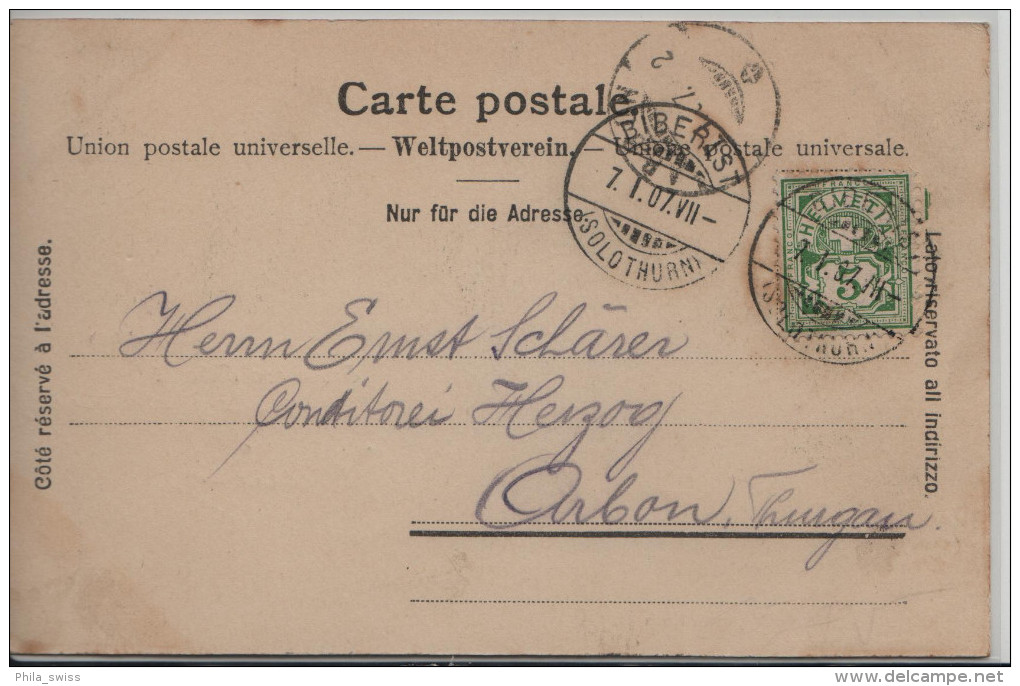 Carte postale.
Union postale universelle. — Weltpostverein. — postale universale.
Nur für die Adresse.
Côté réservé à l'adresse.
Lato riservato all indirizzo.
BIBERIST
7.I.07.VII–
(SOLOTHURN)
FRANCO
HELVETIA
5
Herrn Ernst Schärer
Conditorei Herzog
Arbon, Thurgau.
Phila_swiss
delcampe.net